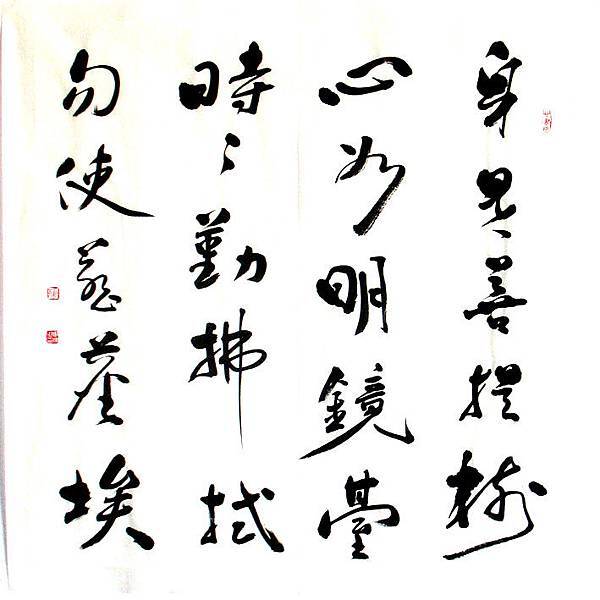 身是菩提樹
心如明鏡臺
時〻勤拂拭
勿使惹塵埃